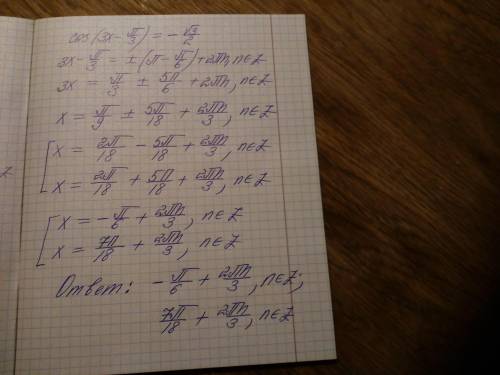 cos(3x - π/3) = -√3/2
3x - π/3 = ±(π - π/6) + 2πn, n∈Z
3x = π/3 ± 5π/6 + 2πn, n∈Z
x = π/9 ± 5π/18 + 2πn/3, n∈Z
[ x = 2π/18 - 5π/18 + 2πn/3, n∈Z
x = 2π/18 + 5π/18 + 2πn/3, n∈Z
[ x = -π/6 + 2πn/3, n∈Z
x = 7π/18 + 2πn/3, n∈Z
Ответ: -π/6 + 2πn/3, n∈Z;
7π/18 + 2πn/3, n∈Z